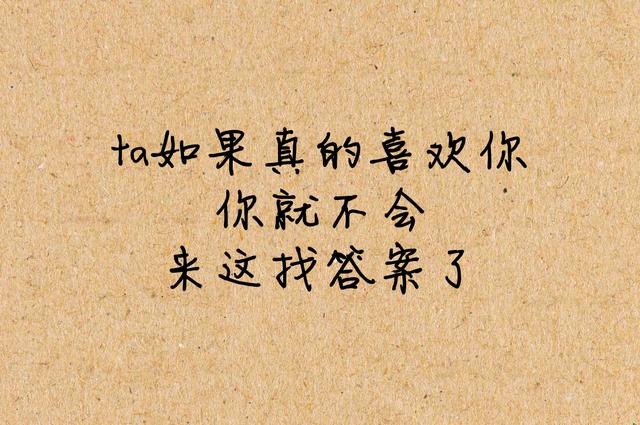 ta如果真的喜欢你
你就不会
来这找答案了